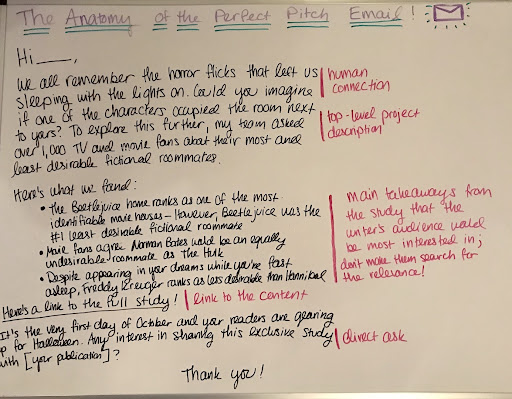 The Anatomy of the Perfect Pitch Email!
Hi ___,
We all remember the horror flicks that left us
sleeping with the lights on. Could you imagine
if one of the characters occupied the room next
to yours? To explore this further, my team asked
over 1,000 TV and movie fans about their most and
least desirable fictional roommates.
human
connection
top-level project
description
Here's what we found:
• The Beetlejuice home ranks as one of the most
identifiable movie houses - However, Beetlejuice was the
#1 least desirable fictional roommate
• Movie fans agree Norman Bates would be an equally
undesirable roommate as the Hulk
• Despite appearing in your dreams while you're fast
asleep, Freddy Krueger ranks as less desirable than Hannibal
Main takeaways from
the study that the
writer's audience would
be most interested in;
don't make them search for
the relevance!
Here's a link to the full study!
link to the content
It's the very first day of October and your readers are gearing
up for Halloween. Any interest in sharing this exclusive study
with [your publication]?
direct ask
Thank you!